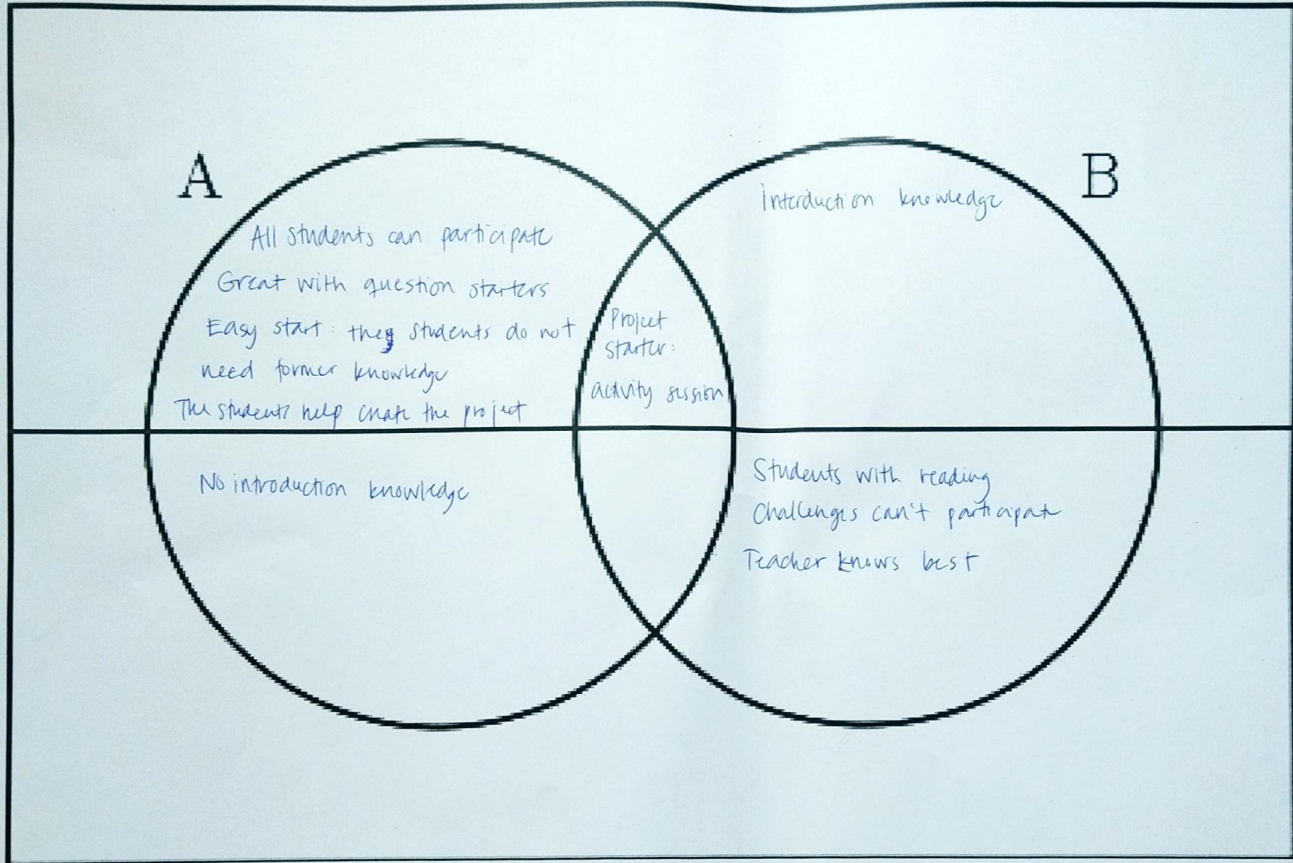 A
B
All students can participate
Great with question starters
Easy start: they students do not
need former knowledge
The students help create the project
Project
starter:
activity session
Interduction knowledge
No introduction knowledge
Students with reading
Challenges can't participate
Teacher knows best